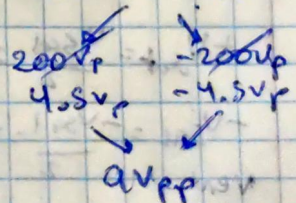 200Vp -200Vp
4.5Vp -4.5Vp
9Vpp